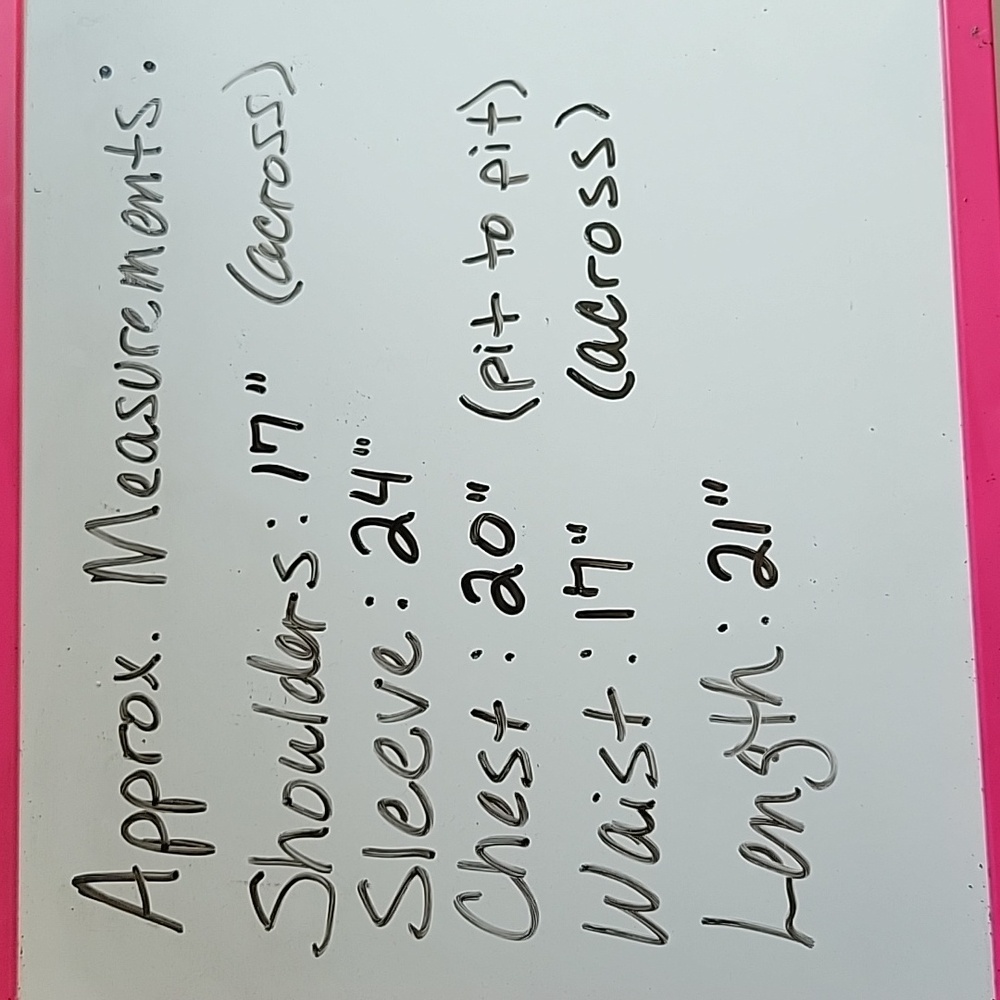 Approx. Measurements:
Shoulders: 17" (across)
Sleeve: 24"
Chest: 20" (pit to pit)
Waist: 17" (across)
Length: 21"